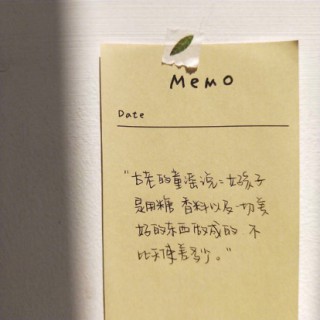 Memo
Date
“古老的童谣说：女孩子
是用糖 香料以及一切美
好的东西做成的 不
比天使差多少。”